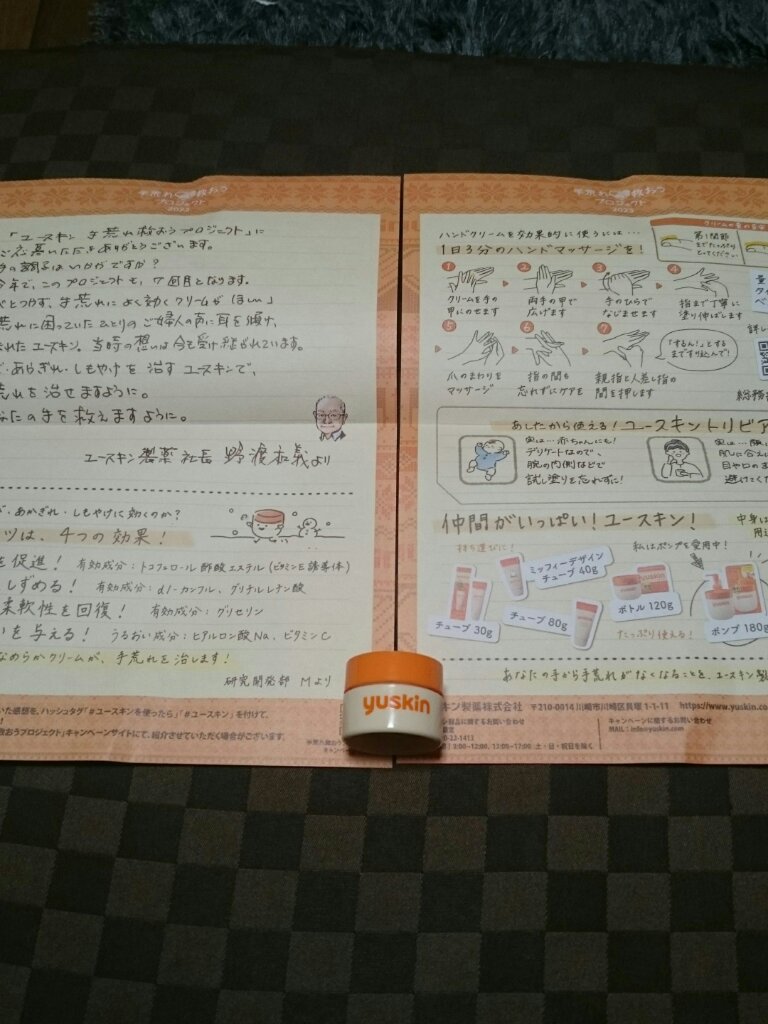 手荒れから救おう
プロジェクト
2023
「ユースキン 手荒れ救おうプロジェクト」に
ご応募いただきありがとうございます。
調子はいかがですか?
今年で、このプロジェクトも
べとつかず、手荒れによく効くクリームがほしい」
荒れに困っていたひとりのご婦人の声に耳を傾け、
れたユースキン。当時の想いは今も受け継がれています。
・あかぎれ・しもやけを治すユースキンで、
荒れを治せますように。
なたの手を救えますように。
ユースキン製薬 社長 野渡和義より
・あかぎれ・しもやけに効くのか?
ツは、4つの効果!
を促進! 有効成分:トコフェロール酢酸エステル(ビタミンE誘導体)
しずめる! 有効成分:dl-カンフル、グリチルレチン酸
柔軟性を回復! 有効成分:グリセリン
いを与える! うるおい成分:ヒアルロン酸Na、ビタミンC
なめらかクリームが、手荒れを治します!
研究開発部 Mより
いた感想を、ハッシュタグ「#ユースキンを使ったら」「#ユースキン」を付けて、
救おうプロジェクト」キャンペーンサイトにて、紹介させていただく場合がございます。
手荒れから救おう
プロジェクト
2023
ハンドクリームを効果的に使うには…
1日3分のハンドマッサージを!
クリームの量の目安
第1関節
までたっぷり
とってください
1 2 3 4
クリームを手の
甲にのせます
両手の甲で
広げます
手のひらで
なじませます
指まで丁寧に
塗り伸ばします
5 6 7
爪のまわりを
マッサージ
指の間も
忘れずにケアを
親指と人差し指の
間を押します
「するん!」とする
まですり込んで!
あしたから使える!ユースキントリビア
実は…赤ちゃんにも!
デリケートなので、
腕の内側などで
試し塗りを忘れずに!
仲間がいっぱい!ユースキン!
持ち運びに!
ミッフィーデザイン
チューブ 40g
私はポンプを愛用中!
チューブ 30g
チューブ 80g
ボトル 120g
ポンプ 180g
たっぷり使える!
あなたの手から手荒れがなくなることを、ユースキン製
キン製薬株式会社 〒210-0014 川崎市川崎区貝塚 1-1-11 https://www.yuskin.co
製品に関するお問い合わせ
キャンペーンに関するお問い合わせ
MAIL:info@yuskin.com
9:00~12:00、13:00~17:00 土・日・祝日を除く
yuskin